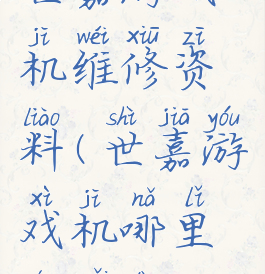 jī wéi xiū zī
机维修资
liào shì jiā yóu
料(世嘉游
xì jī nǎ lǐ
戏机哪里